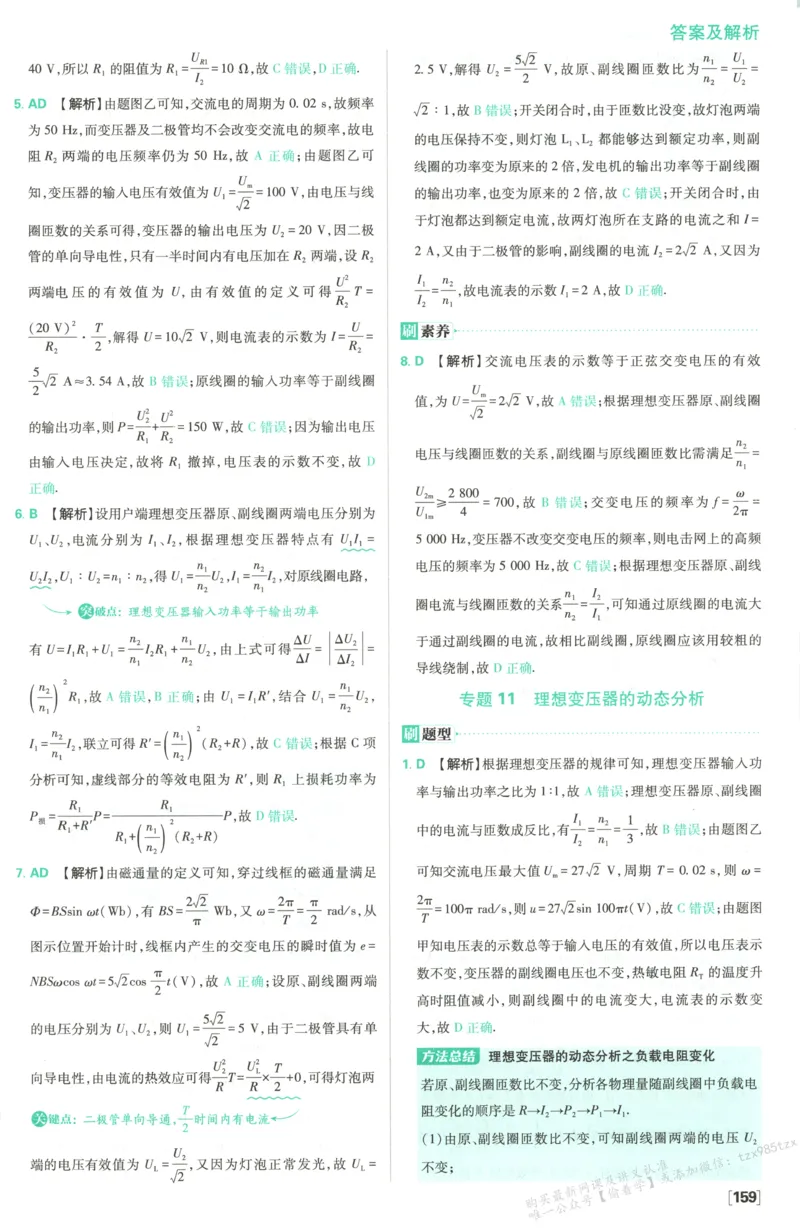 答案及解析
40 V,所以 R₁ 的阻值为 R₁=U_{R1}/I₂=10 Ω,故 C 错误,D 正确.
5. AD 【解析】由题图乙可知,交流电的周期为 0.02 s,故频率
为 50 Hz,而变压器及二极管均不会改变交流电的频率,故电
阻 R₂ 两端的电压频率仍为 50 Hz,故 A 正确;由题图乙可
知,变压器的输入电压有效值为 U₁=U_m/√2=100 V,由电压与线
圈匝数的关系可得,变压器的输出电压为 U₂=20 V,因二极
管的单向导电性,只有一半时间内有电压加在 R₂ 两端,设 R₂
两端电压的有效值为 U,由有效值的定义可得 U²/R₂ T=
(20 V)²/R₂·T/2,解得 U=10√2 V,则电流表的示数为 I=U/R₂=
5/2 √2 A≈3.54 A,故 B 错误;原线圈的输入功率等于副线圈
的输出功率,则 P=U₂²/R₁+U²/R₂=150 W,故 C 错误;因为输出电压
由输入电压决定,故将 R₁ 撤掉,电压表的示数不变,故 D
正确.
6. B 【解析】设用户端理想变压器原、副线圈两端电压分别为
U₁、U₂,电流分别为 I₁、I₂,根据理想变压器特点有 U₁I₁=
U₂I₂,U₁:U₂=n₁:n₂,得 U₁=n₁/n₂ U₂,I₁=n₂/n₁ I₂,对原线圈电路,
突破点:理想变压器输入功率等于输出功率
有 U=I₁R₁+U₁=n₂/n₁ I₂R₁+n₁/n₂ U₂,由上式可得 ΔU/ΔI=|ΔU₂/ΔI₂|=
(n₂/n₁)² R₁,故 A 错误,B 正确;由 U₁=I₁R′,结合 U₁=n₁/n₂ U₂,
I₁=n₂/n₁ I₂,联立可得 R′=(n₁/n₂)²(R₂+R),故 C 错误;根据 C 项
分析可知,虚线部分的等效电阻为 R′,则 R₁ 上损耗功率为
P_损=R₁/(R₁+R′) P=R₁/(R₁+(n₁/n₂)²(R₂+R)) P,故 D 错误.
7. AD 【解析】由磁通量的定义可知,穿过线框的磁通量满足
Φ=BSsin ωt(Wb),有 BS=2√2/π Wb,又 ω=2π/T=π/2 rad/s,从
图示位置开始计时,线框内产生的交变电压的瞬时值为 e=
NBSωcos ωt=5√2cos π/2 t(V),故 A 正确;设原、副线圈两端
的电压分别为 U₁、U₂,则 U₁=5√2/√2=5 V,由于二极管具有单
向导电性,由电流的热效应可得 U₂²/R T=U_L²/R×T/2+0,可得灯泡两
关键点:二极管单向导通,T/2 时间内有电流
端的电压有效值为 U_L=U₂/√2,又因为灯泡正常发光,故 U_L=
2.5 V,解得 U₂=5√2/2 V,故原、副线圈匝数比为 n₁/n₂=U₁/U₂=
√2:1,故 B 错误;开关闭合时,由于匝数比没变,故灯泡两端
的电压保持不变,则灯泡 L₁、L₂ 都能够达到额定功率,则副
线圈的功率变为原来的 2 倍,发电机的输出功率等于副线圈
的输出功率,也变为原来的 2 倍,故 C 错误;开关闭合时,由
于灯泡都达到额定电流,故两灯泡所在支路的电流之和 I=
2 A,又由于二极管的影响,副线圈的电流 I₂=2√2 A,又因为
I₁/I₂=n₂/n₁,故电流表的示数 I₁=2 A,故 D 正确.
刷素养
8. D 【解析】交流电压表的示数等于正弦交变电压的有效
值,为 U=U_m/√2=2√2 V,故 A 错误;根据理想变压器原、副线圈
电压与线圈匝数的关系,副线圈与原线圈匝数比需满足 n₂/n₁=
U_{2m}/U_{1m}≥2 800/4=700,故 B 错误;交变电压的频率为 f=ω/2π=
5 000 Hz,变压器不改变交变电压的频率,则电击网上的高频
电压的频率为 5 000 Hz,故 C 错误;根据理想变压器原、副线
圈电流与线圈匝数的关系 n₁/n₂=I₂/I₁,可知通过原线圈的电流大
于通过副线圈的电流,故相比副线圈,原线圈应该用较粗的
导线绕制,故 D 正确.
专题 11 理想变压器的动态分析
刷题型
1. D 【解析】根据理想变压器的规律可知,理想变压器输入功
率与输出功率之比为 1:1,故 A 错误;理想变压器原、副线圈
中的电流与匝数成反比,有 I₁/I₂=n₂/n₁=1/3,故 B 错误;由题图乙
可知交流电压最大值 U_m=27√2 V,周期 T=0.02 s,则 ω=
2π/T=100π rad/s,则 u=27√2sin 100πt(V),故 C 错误;由题图
甲知电压表的示数总等于输入电压的有效值,所以电压表示
数不变,变压器的副线圈电压也不变,热敏电阻 R_T 的温度升
高时阻值减小,则副线圈中的电流变大,电流表的示数变
大,故 D 正确.
方法总结 理想变压器的动态分析之负载电阻变化
若原、副线圈匝数比不变,分析各物理量随副线圈中负载电
阻变化的顺序是 R→I₂→P₂→P₁→I₁.
(1)由原、副线圈匝数比不变,可知副线圈两端的电压 U₂
不变;
购买最新网课及讲义认准
唯一公众号【偷着学】或添加微信:tzx985tzx
[159]